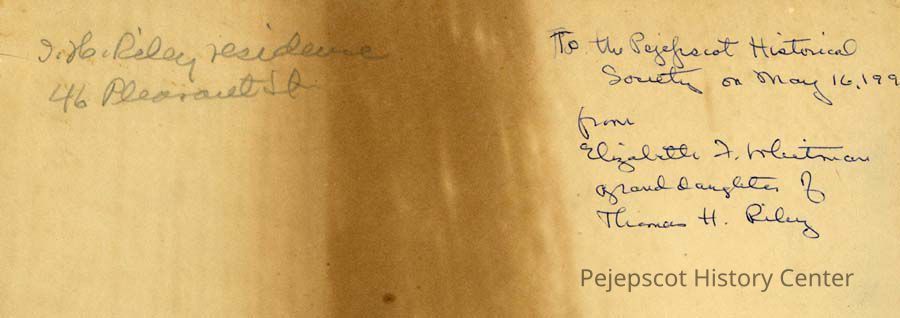 T. H. Riley residence
46 Pleasant St
To the Pejepscot Historical
Society on May 16, 199
from
Elizabeth F. Whitman
granddaughter of
Thomas H. Riley
Pejepscot History Center